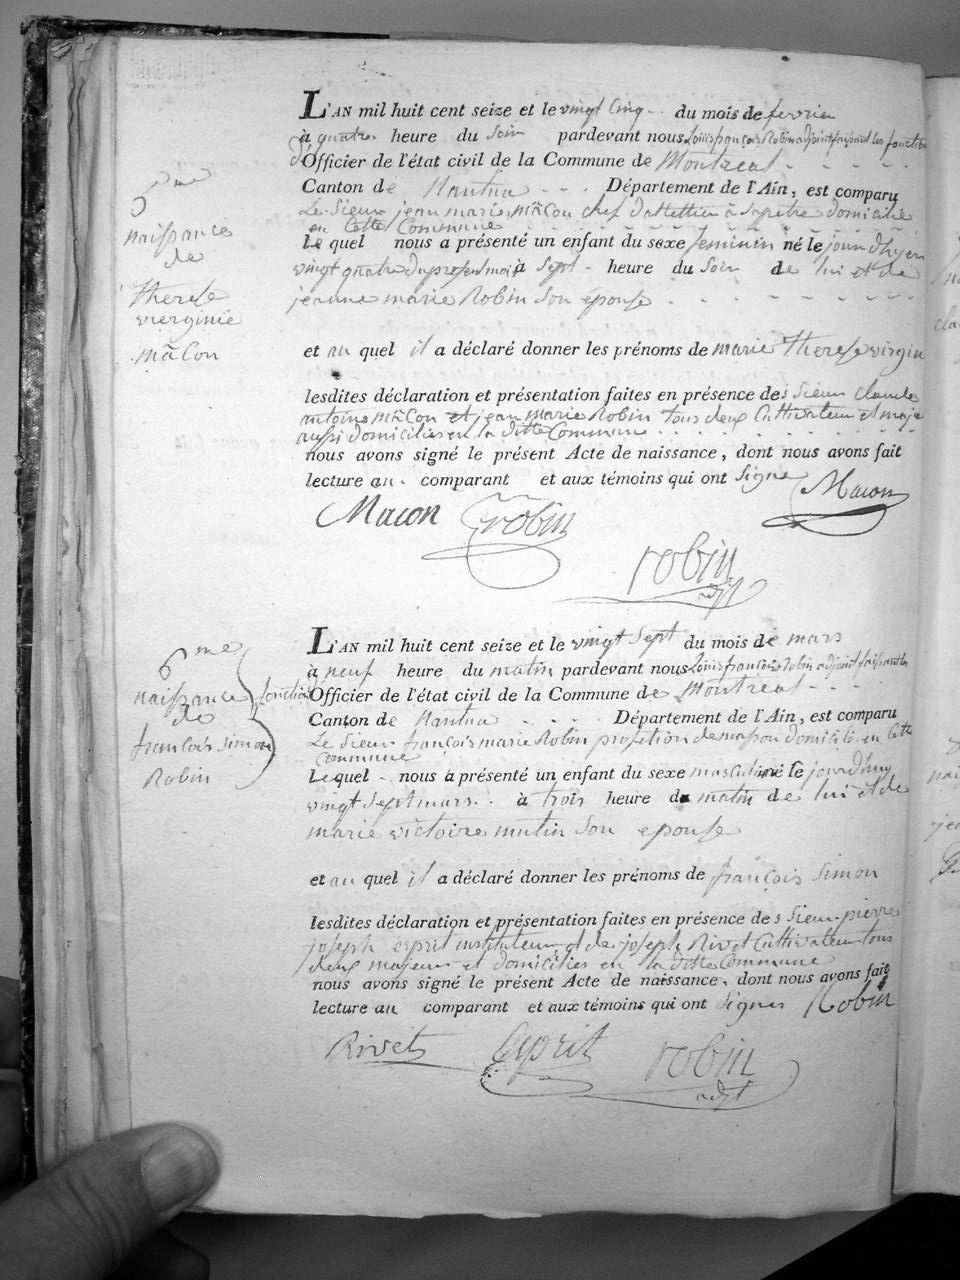 5me
naissance
de
therese
vierginie
mâcon
L'AN mil huit cent seize et le vingt cinq du mois de fevrier
à quatre heure du soir pardevant nous Louis françois Robin adjoint faisant les fonction
d'Officier de l'état civil de la Commune de Montreal
Canton de Nantua Département de l'Ain, est comparu
Le Sieur jean marie mâcon chef domicilié
en cette Commune
Le quel nous a présenté un enfant du sexe feminin né le jour d'hyer
vingt quatre du present mois à sept heure du soir de lui et de
jeanne marie Robin son épouse
et au quel il a déclaré donner les prénoms de marie therese virgin
lesdites déclaration et présentation faites en présence des Sieur claude
antoine mâcon et jean marie Robin tous deux Cultivateur et maje
aussi domiciliés en la ditte Commune
nous avons signé le présent Acte de naissance, dont nous avons fait
lecture au comparant et aux témoins qui ont signe Macon
Macon robin
robin
adjt
6me
naissance
de
françois simon
Robin
L'AN mil huit cent seize et le vingt sept du mois de mars
à neuf heure du matin pardevant nous Louis françois Robin adjoint faisant les
fonction d'Officier de l'état civil de la Commune de Montreal
Canton de Nantua Département de l'Ain, est comparu
Le Sieur françois marie Robin profetion de masson domicilié en cette
Commune
Lequel nous à présenté un enfant du sexe masculin né le jourdhuy
vingt sept mars à trois heure du matin de lui et de
marie victoire mutin son epouse
et au quel il a déclaré donner les prénoms de françois simon
lesdites déclaration et présentation faites en présence des Sieur pierre
joseph esprit instituteur et de joseph Rivet Cultivateur tous
deux majeur et domiciliés en la ditte Commune
nous avons signé le présent Acte de naissance, dont nous avons fait
lecture au comparant et aux témoins qui ont signes Robin
Rivet Esprit robin
adjt